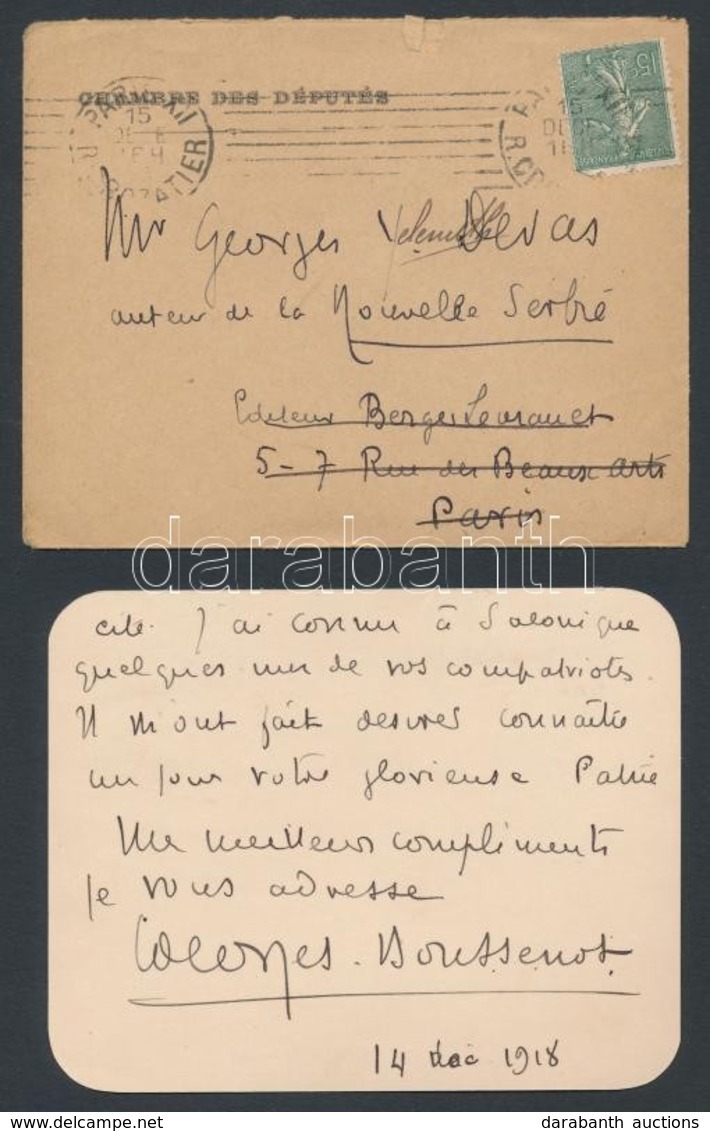 CHAMBRE DES DÉPUTÉS
PARIS XII
15
DEC
R. CROZATIER
15c
Mr Georges Devas
auteur de la Nouvelle Serbie
Editeur Berger Levrault
5-7 Rue des Beaux arts
Paris
darabanth
cité. J'ai connu à Salonique
quelques uns de vos compatriotes.
Il m'ont fait desirer connaitre
un jour votre glorieuse Patrie
Mes meilleurs compliments
je vous adresse
Georges. Boussenot
14 dec 1918
darabanth auctions